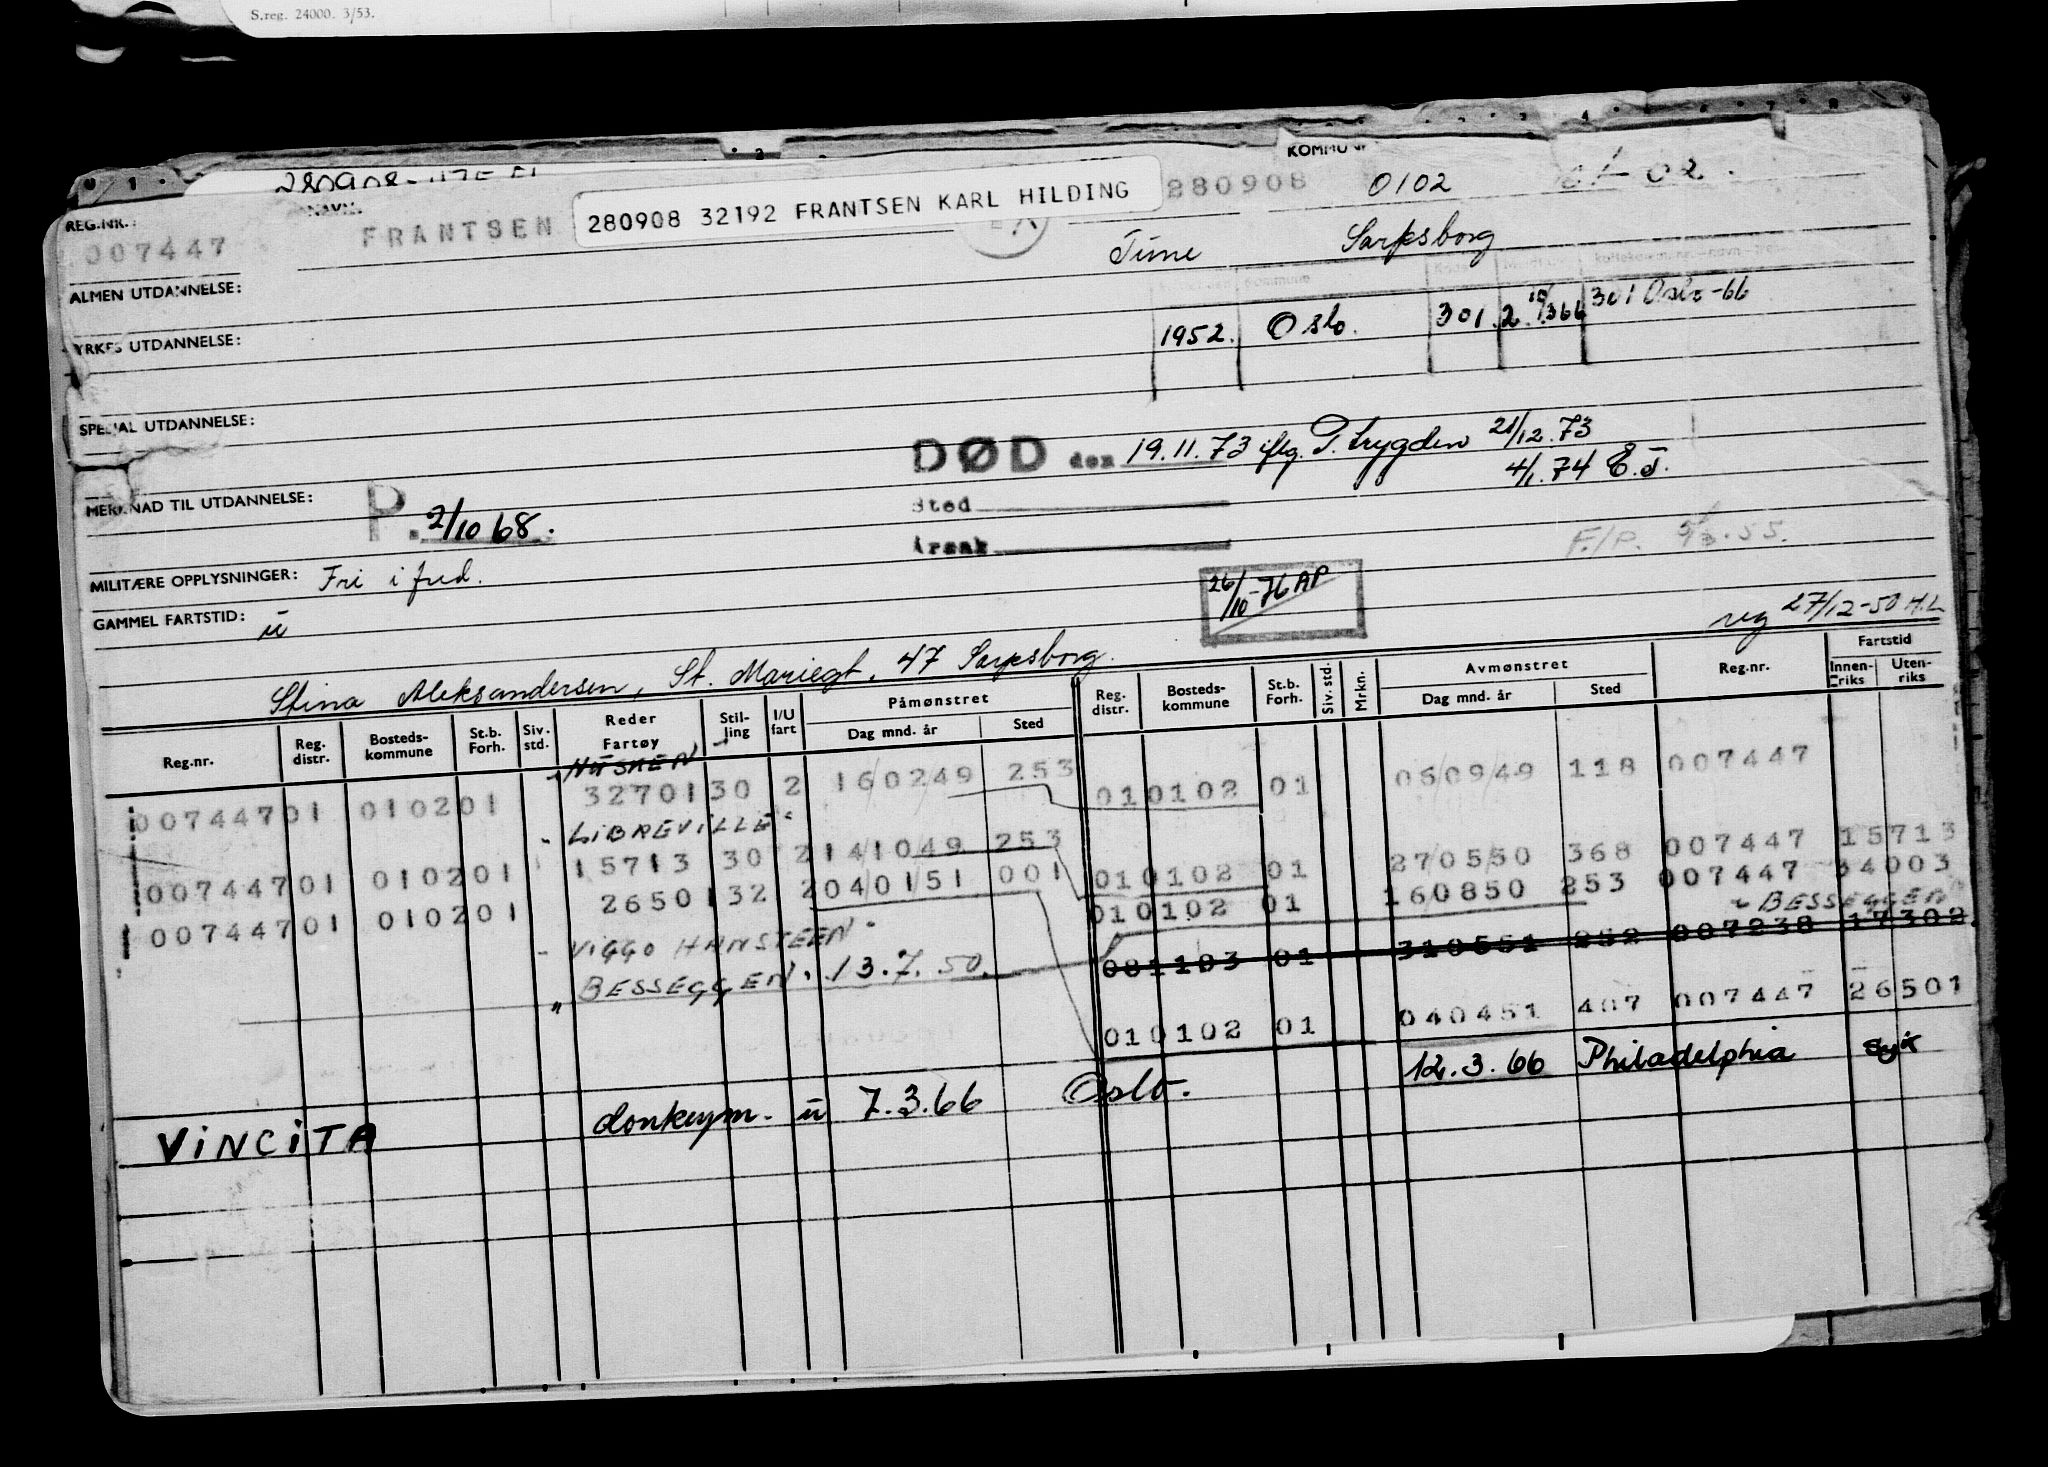 S.reg. 24000. 3/53.
KOMMU
REG.NR.: 280908 0102 01-02.
007447 FRANTSEN 280908 32192 FRANTSEN KARL HILDING
Tune Sarpsborg
ALMEN UTDANNELSE:
YRKES UTDANNELSE: 1952. Oslo. 301. 2. 10/366 301 Oslo-66
SPECIAL UTDANNELSE:
DØD den 19.11.73 iflg. P. trygden 21/12.73
4/1.74 E.J.
MERKNAD TIL UTDANNELSE: P. 2/10 68.
Sted
Årsak
F./P. 55.
MILITÆRE OPPLYSNINGER: Fri i fred.
26/10-76 AP
GAMMEL FARTSTID: ü
reg 27/12-50 H.L
Stina Aleksandersen, St. Mariegt. 47 Sarpsborg.
Reg.nr. Reg. distr. Bosteds-kommune St.b. Forh. Siv. std. Reder Fartøy Stil-ling I/U fart Påmønstret Dag mnd. år Sted Reg. distr. Bosteds-kommune St.b. Forh. Siv. std. Mrkn. Avmønstret Dag mnd. år Sted Reg.nr. Fartstid Innen-riks Uten-riks
007447 01 0102 01 32701 30 2 160249 253 01 0102 01 050949 118 007447
"LIBREVILLE"
007447 01 0102 01 15713 30 2 141049 253 01 0102 01 270550 368 007447 15713
007447 01 0102 01 26501 32 2 040151 001 01 0102 01 160850 253 007447 34003
"BESSEGGEN
"VIGGO HANSTEEN" 08 1103 01 310551 252 007238 17302
"BESSEGGEN". 13.7.50.
01 0102 01 040451 407 007447 26501
VINCITA donkeym. ü 7.3.66 Oslo. 12.3.66 Philadelphia syk